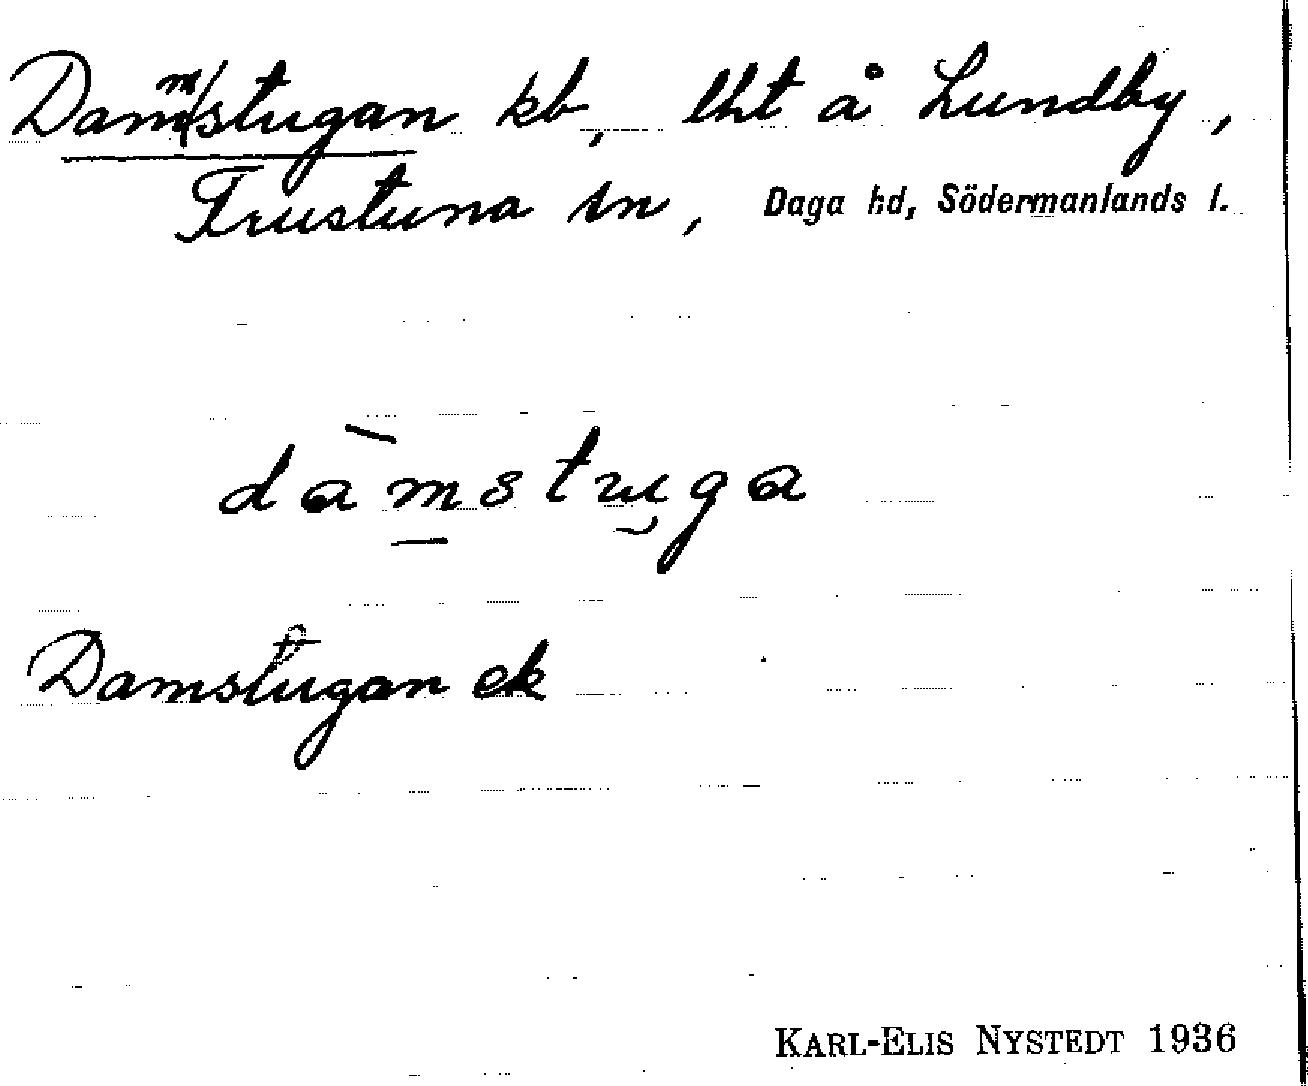 Dammstugan kb, lht å Lundby,
Frustuna sn, Daga hd, Södermanlands l.
dàmstuga
Damstugan ek
KARL-ELIS NYSTEDT 1936